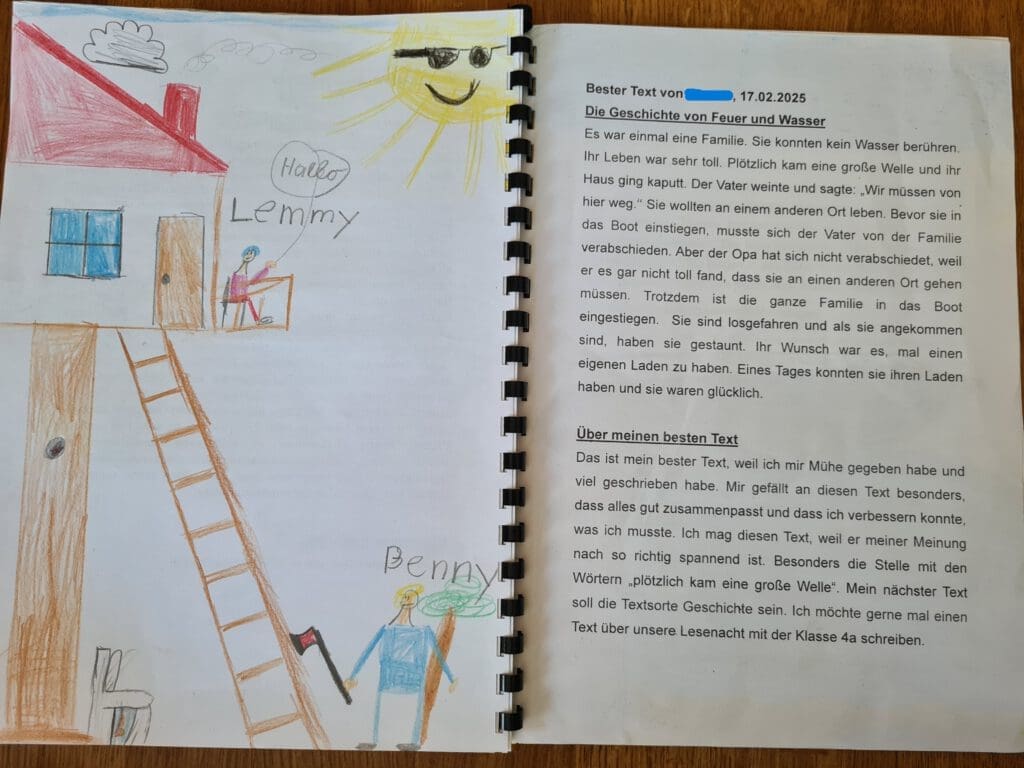 Hallo
Lemmy
Benny
Bester Text von , 17.02.2025
Die Geschichte von Feuer und Wasser
Es war einmal eine Familie. Sie konnten kein Wasser berühren.
Ihr Leben war sehr toll. Plötzlich kam eine große Welle und ihr
Haus ging kaputt. Der Vater weinte und sagte: „Wir müssen von
hier weg.“ Sie wollten an einem anderen Ort leben. Bevor sie in
das Boot einstiegen, musste sich der Vater von der Familie
verabschieden. Aber der Opa hat sich nicht verabschiedet, weil
er es gar nicht toll fand, dass sie an einen anderen Ort gehen
müssen. Trotzdem ist die ganze Familie in das Boot
eingestiegen. Sie sind losgefahren und als sie angekommen
sind, haben sie gestaunt. Ihr Wunsch war es, mal einen
eigenen Laden zu haben. Eines Tages konnten sie ihren Laden
haben und sie waren glücklich.
Über meinen besten Text
Das ist mein bester Text, weil ich mir Mühe gegeben habe und
viel geschrieben habe. Mir gefällt an diesen Text besonders,
dass alles gut zusammenpasst und dass ich verbessern konnte,
was ich musste. Ich mag diesen Text, weil er meiner Meinung
nach so richtig spannend ist. Besonders die Stelle mit den
Wörtern „plötzlich kam eine große Welle“. Mein nächster Text
soll die Textsorte Geschichte sein. Ich möchte gerne mal einen
Text über unsere Lesenacht mit der Klasse 4a schreiben.